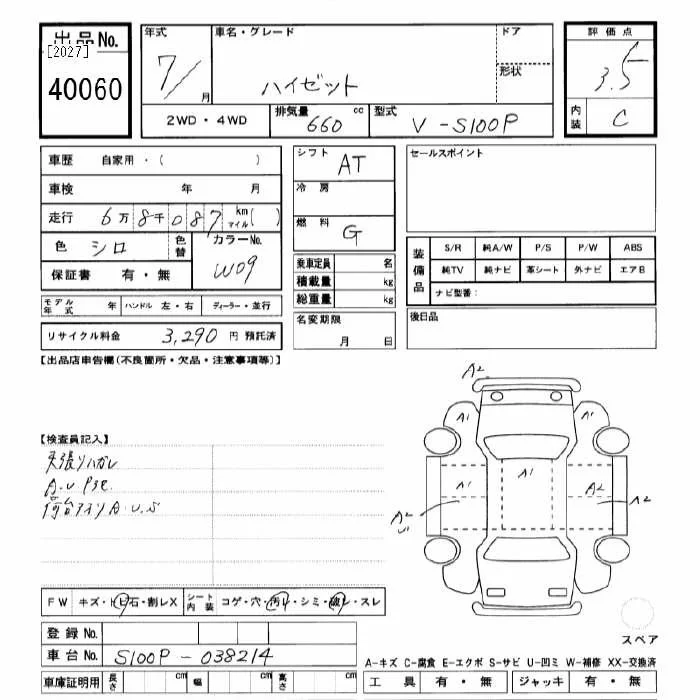 出品 No.
[2027]
40060
年式
7/
月
車名・グレード
ハイゼット
ドア
形状
評価点
3.5
内装
C
2WD・4WD
排気量
660
cc
型式
V-S100P
車歴 自家用・( )
車検 年 月
走行 6万8千087 km マイル( )
色 シロ
色替
カラーNo.
W09
保証書 有・無
モデル年式 年
ハンドル 左・右
ディーラー・並行
リサイクル料金 3,290 円 預託済
シフト
AT
冷房
燃料
G
乗車定員 名
積載量 kg
総重量 kg
名変期限
月 日
セールスポイント
装備品
S/R 純A/W P/S P/W ABS
純TV 純ナビ 革シート 外ナビ エアB
ナビ型番:
後日品
【出品店申告欄(不良箇所・欠品・注意事項等)】
【検査員記入】
天張りハガレ
A2
A1
A1
A1
A1
A2
A2
A2
U1
スペア
FW キズ・トビ石・割レX
シート内装 コゲ・穴・汚レ・シミ・破レ・スレ
登録 No.
車台 No. S100P-038214
車庫証明用 長さ cm 幅 cm 高さ cm
A-キズ C-腐食 E-エクボ S-サビ U-凹ミ W-補修 XX-交換済
工具 有・無 ジャッキ 有・無